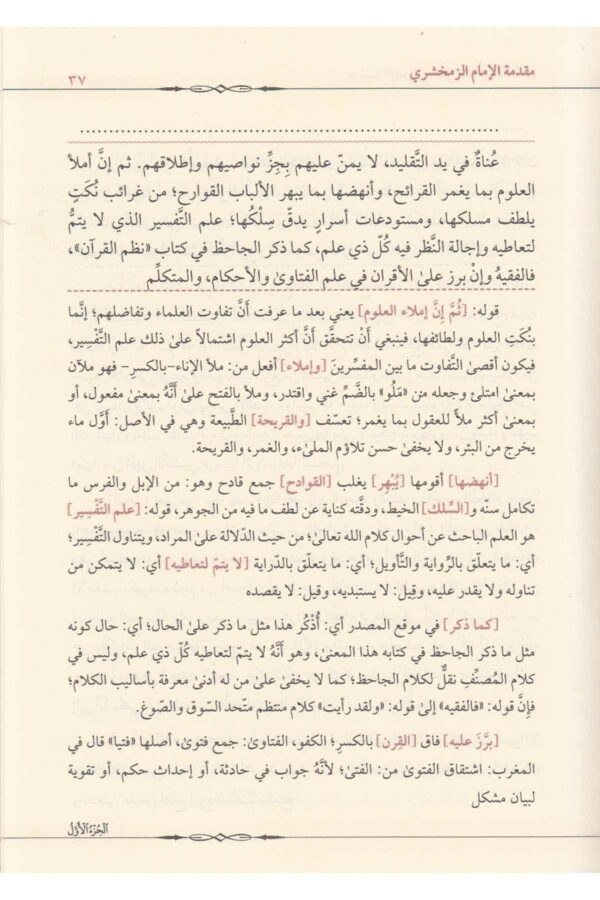 مقدمة الإمام الزمخشري
٣٧
عُناةٌ في يد التَّقليد، لا يمنّ عليهم بِجِزِّ نواصيهم وإطلاقهم. ثم إنَّ أملأ
العلوم بما يغمر القرائح، وأنهضها بما يبهر الألباب القوارح؛ من غرائب نُكَتٍ
يلطف مسلكها، ومستودعات أسرارٍ يدقّ سِلْكُها؛ علم التَّفسير الذي لا يتمُّ
لتعاطيه وإجالة النَّظر فيه كُلّ ذي علم، كما ذكر الجاحظ في كتاب «نظم القرآن»،
فالفقيهُ وإنْ برز علىٰ الأقران في علم الفتاوىٰ والأحكام، والمتكلِّم
قوله: [ثُمَّ إِنَّ إملاء العلوم] يعني بعد ما عرفت أنَّ تفاوت العلماء وتفاضلهم؛ إنَّما
بنُكَتِ العلوم ولطائفها، فينبغي أَنْ تتحقَّق أَنَّ أكثر العلوم اشتمالاً علىٰ ذلك علم التَّفْسِير،
فيكون أقصىٰ التَّفاوت ما بين المفسِّرين [وإملاء] أفعل من: ملأ الإناء-بالكسرِ- فهو ملآن
بمعنىٰ امتلئ وجعله من «مَلُو» بالضَّمِّ غني واقتدر، وملأ بالفتح علىٰ أَنَّهُ بمعنىٰ مفعول، أو
بمعنىٰ أكثر ملأً للعقول بما يغمر؛ تعسّف [والقريحة] الطَّبيعة وهي في الأصل: أوَّل ماء
يخرج من البئر، ولا يخفىٰ حسن تلاؤم المليء، والغمر، والقريحة.
[أنهضها] أقومها [يُبْهِر] يغلب [القوادح] جمع قادح وهو: من الإبل والفرس ما
تكامل سنّه و[السِّلك] الخيط، ودقَّته كناية عن لطف ما فيه من الجوهر، قوله: [علم التَّفْسِير]
هو العلم الباحث عن أحوال كلام الله تعالىٰ؛ من حيث الدّلالة علىٰ المراد، ويتناول التَّفْسِير؛
أي: ما يتعلَّق بالرِّواية والتَّأويل؛ أي: ما يتعلَّق بالدِّراية [لا يتمّ لتعاطيه] أي: لا يتمكن من
تناوله ولا يقدر عليه، وقِيل: لا يستبديه، وقيل: لا يقصده
[كما ذكر] في موقع المصدر أي: أُذْكُر هذا مثل ما ذكر علىٰ الحال؛ أي: حال كونه
مثل ما ذكر الجاحظ في كتابه هذا المعنىٰ، وهو أَنَّهُ لا يتمّ لتعاطيه كُلّ ذي علم، وليس في
كلام المُصنِّفِ نقلٌ لكلام الجاحظ؛ كما لا يخفىٰ علىٰ من له أدنىٰ معرفة بأساليب الكلام؛
فإنَّ قوله: «فالفقيه» إلىٰ قوله: «ولقد رأيت» كلام منتظم متّحد السّوق والصّوغ.
[برَّزَ عليه] فاق [القِرن] بالكسرِ؛ الكفو، الفتاوىٰ: جمع فتوىٰ، أصلها «فتيا» قال في
المغرب: اشتقاق الفتوىٰ من: الفتىٰ؛ لأنَّهُ جواب في حادثة، أو إحداث حكم، أو تقوية
لبيان مشكل
الجُزءُ الأَوَّلُ